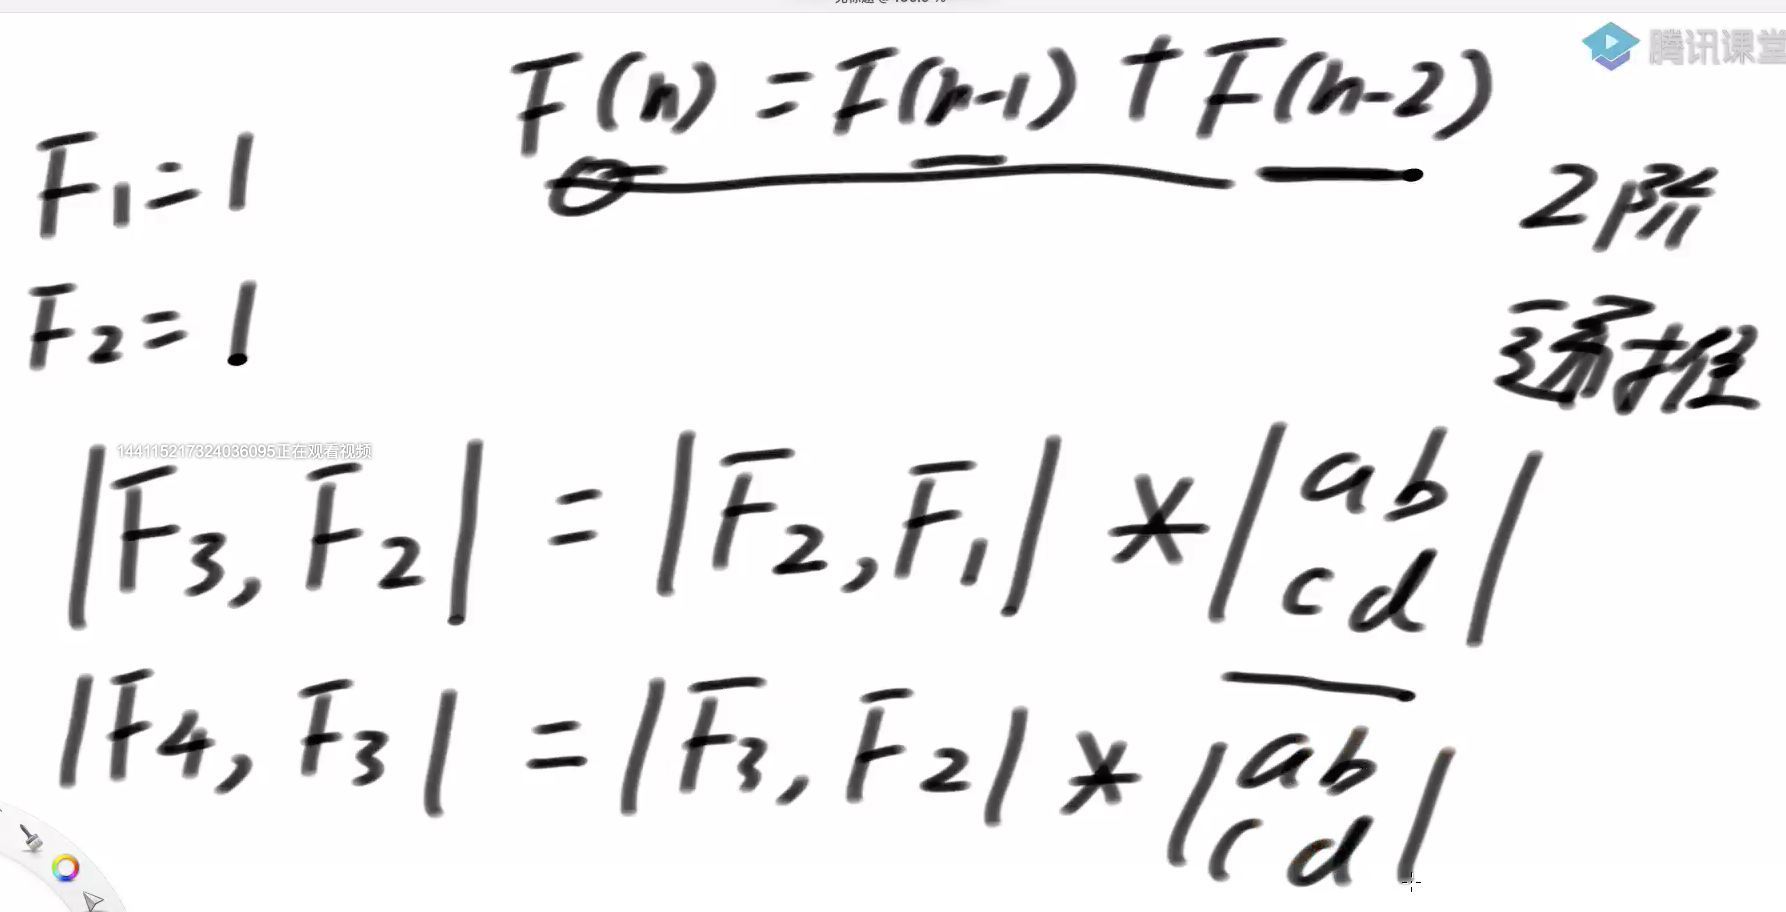 F(n) = F(n-1) + F(n-2)
腾讯课堂
F1 = 1
2阶
F2 = 1
递推
144115217324036095正在观看视频
|F3, F2| = |F2, F1| * |a b
c d|
|F4, F3| = |F3, F2| * |a b
c d|